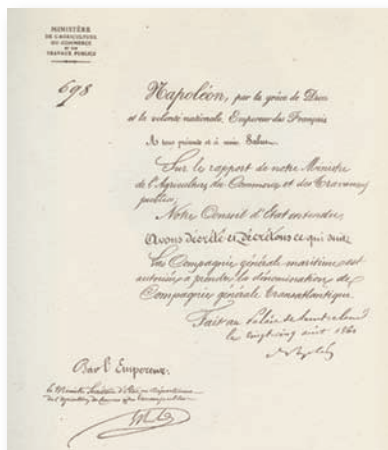 MINISTÈRE
DE L'AGRICULTURE
DU COMMERCE
ET DES
TRAVAUX PUBLICS
698
Napoléon, par la grâce de Dieu
et la volonté nationale, Empereur des Français
A tous présents et à venir Salut.
Sur le rapport de notre Ministre
de l'Agriculture, du Commerce et des Travaux
publics;
Notre Conseil d'Etat entendu,
Avons décrété et décrétons ce qui suit:
La Compagnie générale maritime est
autorisée à prendre la dénomination de
Compagnie générale transatlantique.
Fait au Palais de Saint Cloud
le vingt cinq août 1861
Par l'Empereur:
le Ministre Secrétaire d'Etat au département
de l'agriculture, du commerce et des travaux publics